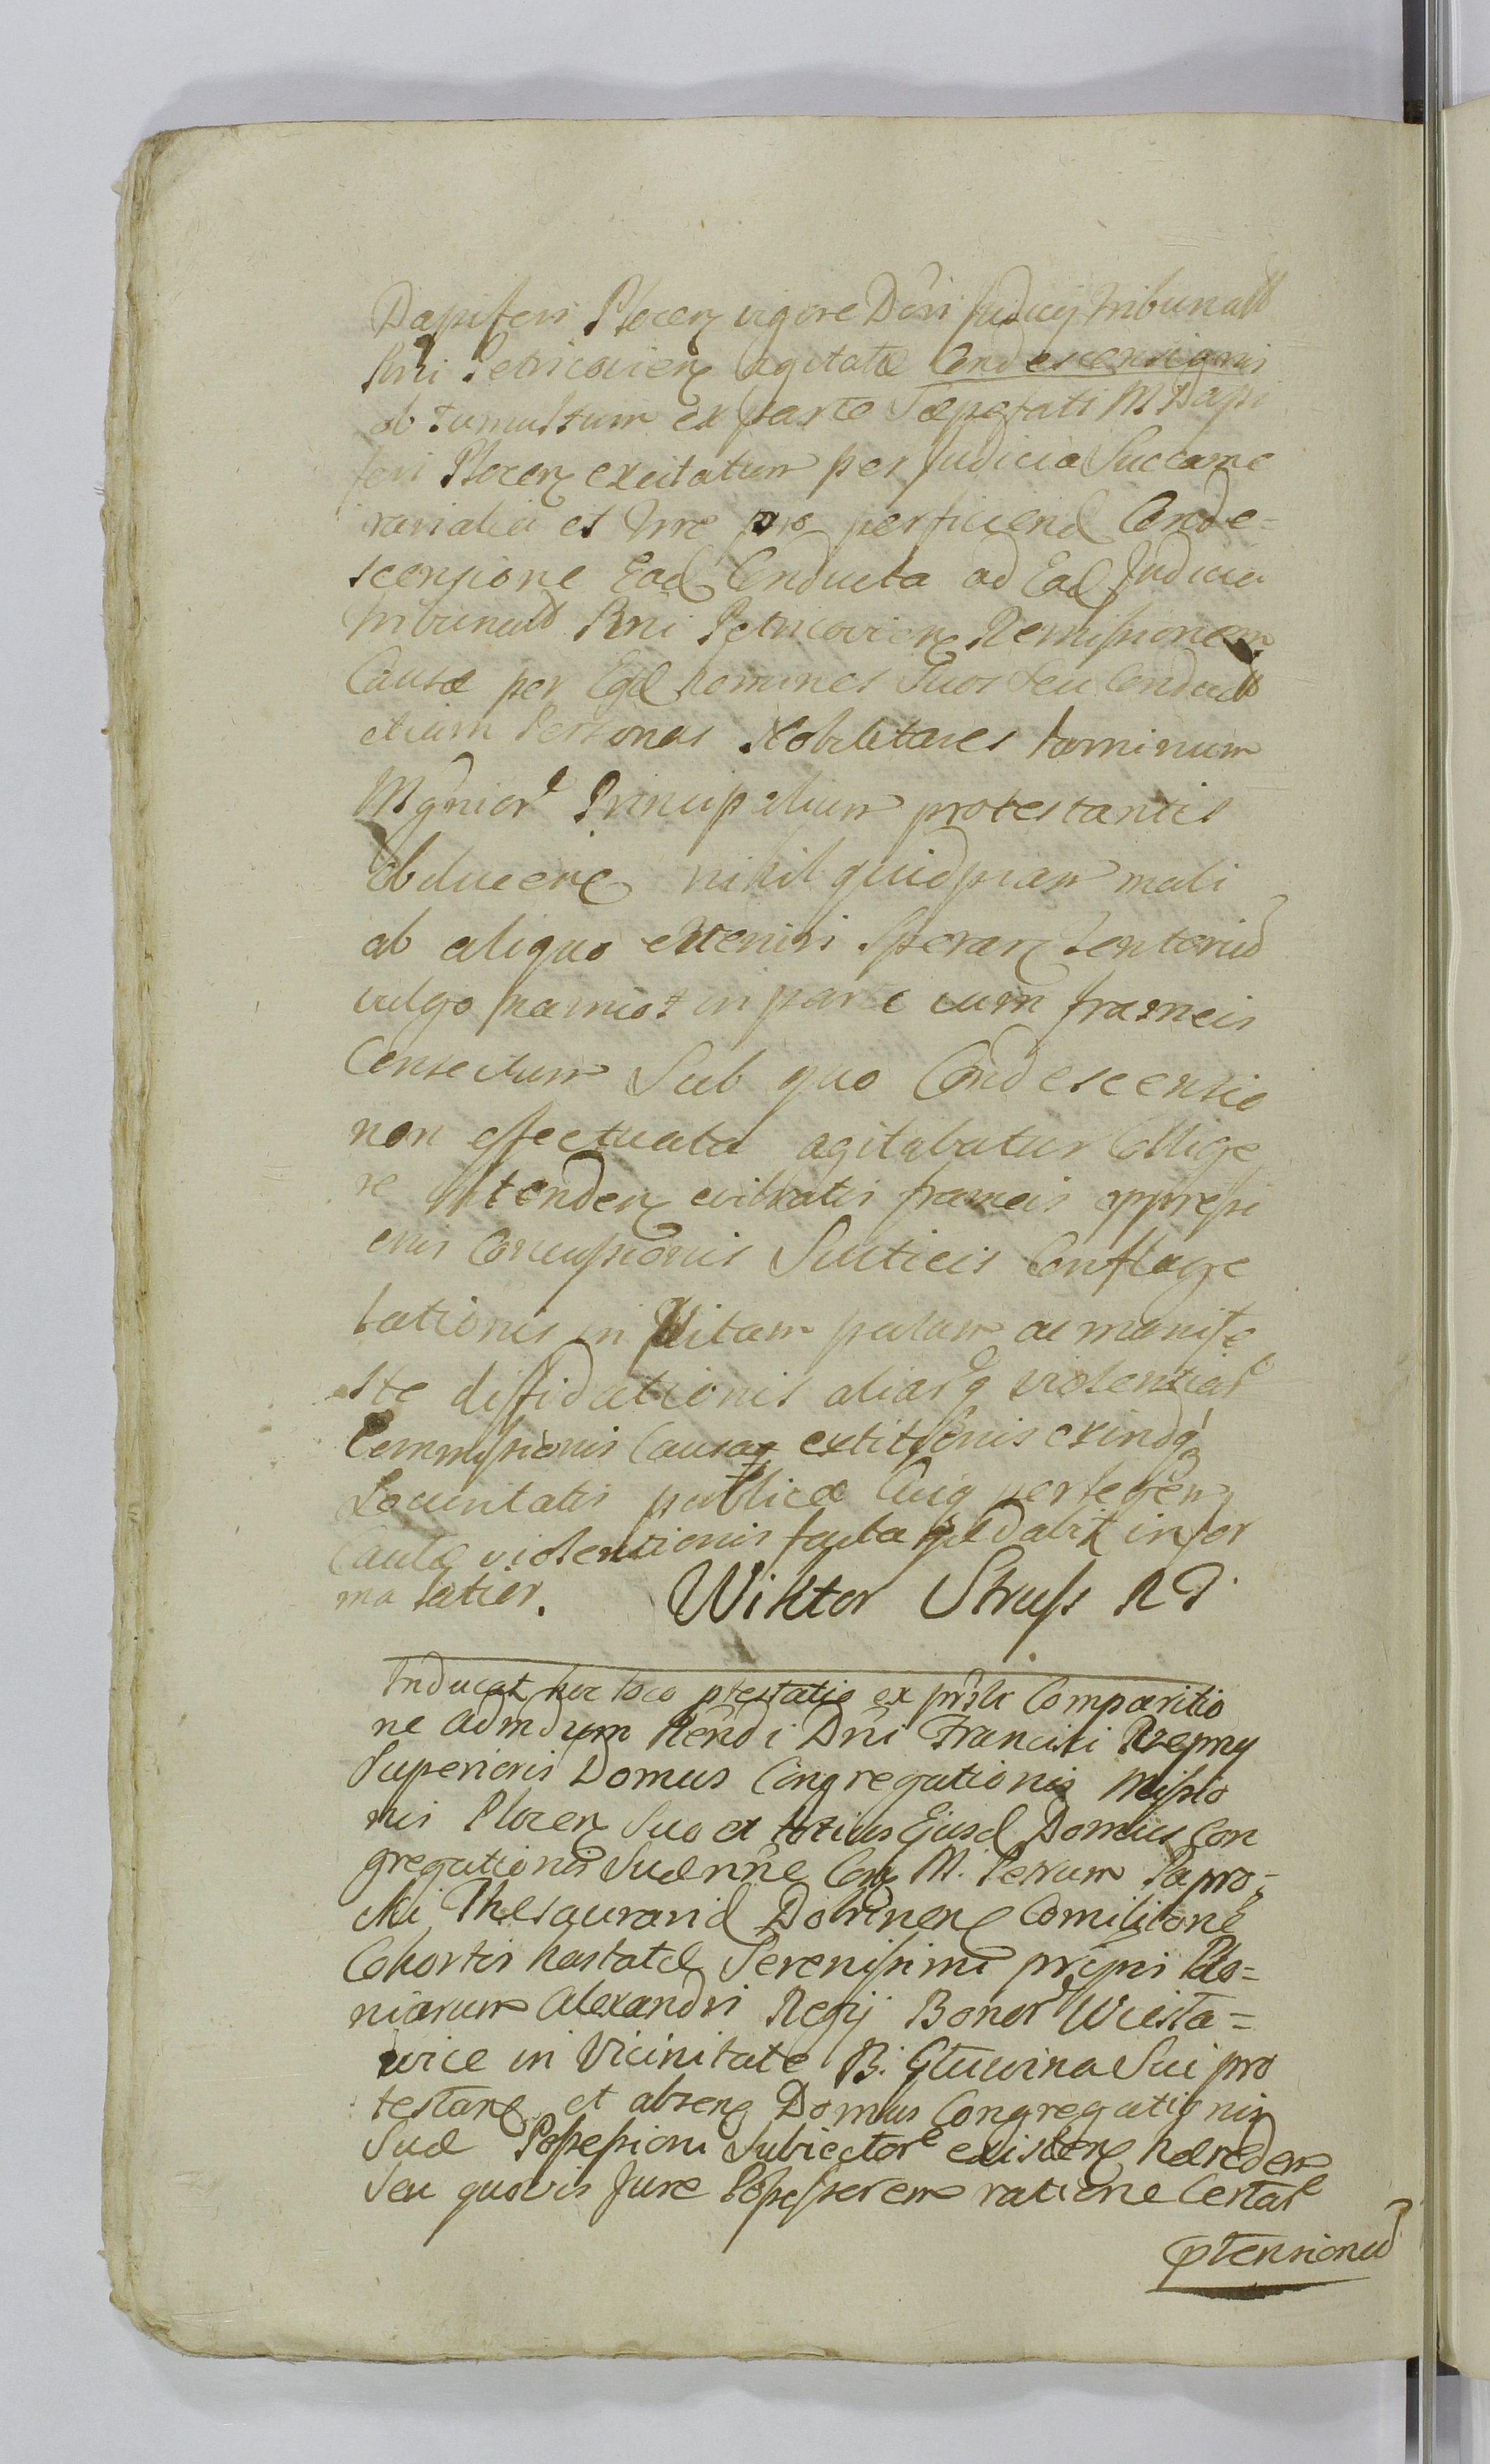 Dapiferi Plocen vigore Dcti Judicij Tribunalis
Rni Petricovien agitatæ Condescensionis
ob tumultum ex parte Sæpefati M Dapi
feri Plocen excitatum per Judicia Succame
rarialia et pro perficiend Conde=
scensione Ead Conducta ad Ead Judicia
Tribunalis Rni Petricovien Remissionem
Causæ per Egd homines Suos Seu Conduct
etiam Personas Nobilitares hominum
Mgnior Principalium protestantis
obducere nihil quidpiam mali
ab aliquo evenisi Speran tentoriu
vulgo namiot in parte cum frameis
Consectum Sub quo Condescensio
non effectuata agitabatur Collige
re Attenden evibratis frameis oppressi
onis Concussionis Scuticis Conflage
lationis in Vitam palam ac manife
ste diffidationis aliarq violentiar
Commissionis Causaq extitionis exindq
Securitatis publicæ Cuiq perlegen
Cautæ violentionis facta in for
ma latior. Wiktor Struss RP
Inducat hoc loco ptestatio ex prsti Comparitio
ne Admdum Rendi Dni Francisci Rzepny
Superioris Domus Congregationis Missio
nis Plocen Suo et totius Ejusd Domus Con
gregationis Suæ nne Con M. Petrum Papro=
cki Thesaurarid Dobrinen Comilitone
Cohortis hastatæ Serenissimi prcpis Polo=
niarum Alexandri Regij Bonor Wiesta=
wice in Vicinitate B. Gluwina Sui pro
testan et absen Domus Congregationis
Suæ Possessioni Subiector existen hæredem
Seu quovis Jure Possessorem ratione Certar
ptensionu